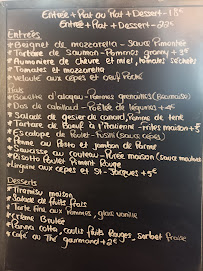 Entrée + Plat ou Plat + Dessert - 18€
Entrée + Plat + Dessert - 22€
Entrées
* Beignet de mozzarella - Sauce Pimentée
* Tartare de Saumon - Pommes granny + 3€
* Aumonière de chèvre et miel, tomates séchées
* Tomates et mozzarella
* Velouté aux cèpes et oeuf Poché
Plats
* Bavette d'aloyau - Pommes grenailles (Béarnaise)
* Dos de cabillaud - Poêlée de légumes + 4€
* Salade de gésier de canard, Pomme de terre
* Tartare de Boeuf à l'italienne - frites maison + 5€
* Escalope de Poulet - fusilli (sauce cèpes)
* Penne au Pesto et jambon de Parme
* Saucisse au couteau - Purée maison (sauce
* Risotto Poulet Piment Rouge
* Linguine aux cèpes et St-Jacques + 5€
Desserts
* Tiramisu maison
* Salade de fruits frais
* Tarte fine aux Pommes, glace vanille
* Crème Brulée
* Panna cotta, coulis fruits Rouges, Sorbet fraise
* Café ou Thé gourmand + 2€